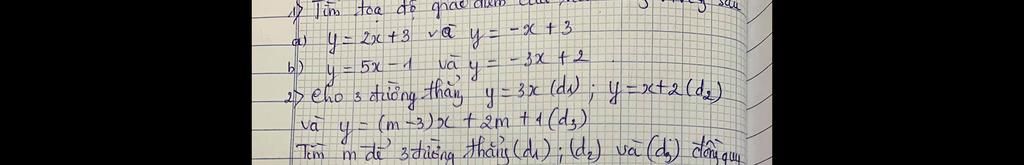 1) Tìm toạ độ giao điểm của sau
a) y = 2x + 3 và y = -x + 3
b) y = 5x - 1 và y = -3x + 2
2) Cho 3 đường thẳng y = 3x (d1) ; y = x + 2 (d2)
và y = (m - 3)x + 2m + 1 (d3)
Tìm m để 3 đường thẳng (d1) ; (d2) và (d3) đồng quy